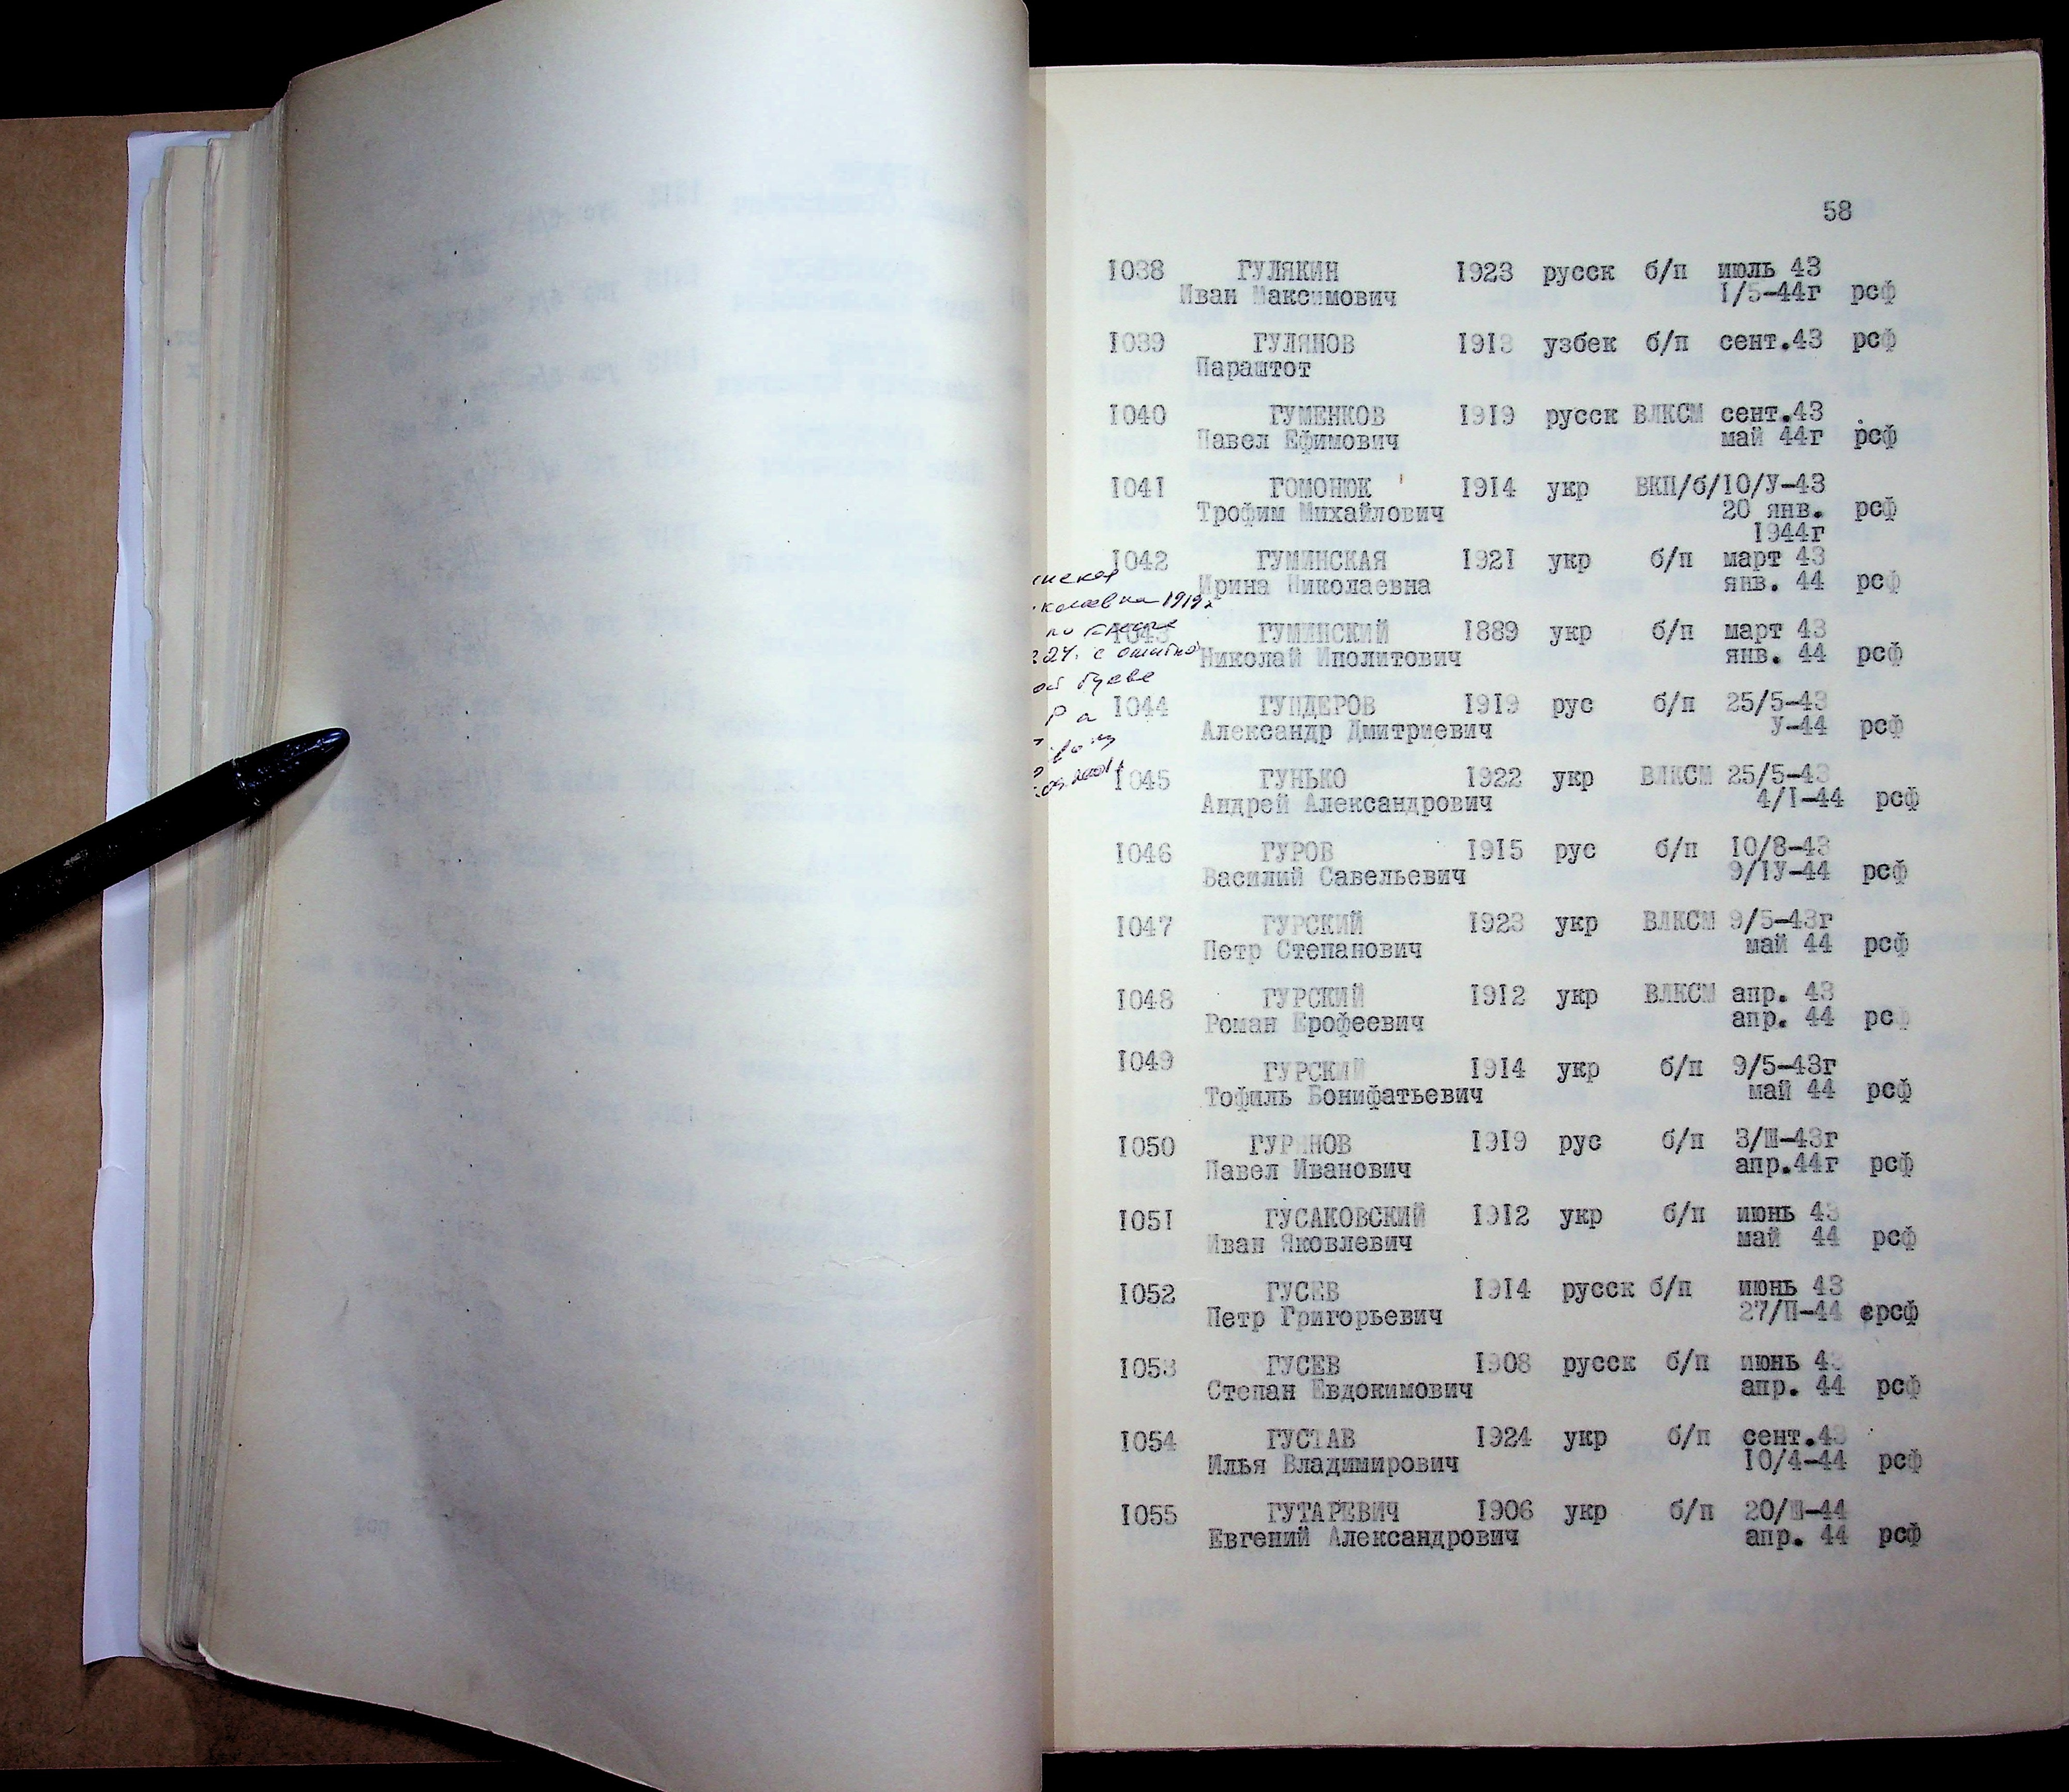 58
1038 ГУЛЯКИН 1923 русск б/п июль 43
Иван Максимович 1/5-44г рсф
1039 ГУЛЯНОВ 1913 узбек б/п сент.43 рсф
Параштот
1040 ГУМЕНКОВ 1919 русск ВЛКСМ сент.43
Павел Ефимович май 44г рсф
1041 ГОМОНЮК 1914 укр ВКП/б/10/У-43
Трофим Михайлович 20 янв. рсф
1944г
1042 ГУМИНСКАЯ 1921 укр б/п март 43
Ирина Николаевна янв. 44 рсф
1919
1043 ГУМИНСКИЙ 1889 укр б/п март 43
Николай Иполитович янв. 44 рсф
букве
1044 ГУНДЕРОВ 1919 рус б/п 25/5-43
Александр Дмитриевич У-44 рсф
1045 ГУНЬКО 1922 укр ВЛКСМ 25/5-43
Андрей Александрович 4/I-44 рсф
1046 ГУРОВ 1915 рус б/п 10/8-43
Василий Савельевич 9/IУ-44 рсф
1047 ГУРСКИЙ 1923 укр ВЛКСМ 9/5-43г
Петр Степанович май 44 рсф
1048 ГУРСКИЙ 1912 укр ВЛКСМ апр. 43
Роман Ерофеевич апр. 44 рсф
1049 ГУРСКИЙ 1914 укр б/п 9/5-43г
Тофиль Бонифатьевич май 44 рсф
1050 ГУРИНОВ 1919 рус б/п 3/Ш-43г
Павел Иванович апр.44г рсф
1051 ГУСАКОВСКИЙ 1912 укр б/п июнь 43
Иван Яковлевич май 44 рсф
1052 ГУСЕВ 1914 русск б/п июнь 43
Петр Григорьевич 27/П-44 ерсф
1053 ГУСЕВ 1908 русск б/п июнь 43
Степан Евдокимович апр. 44 рсф
1054 ГУСТАВ 1924 укр б/п сент.43
Илья Владимирович 10/4-44 рсф
1055 ГУТАРЕВИЧ 1906 укр б/п 20/Ш-44
Евгений Александрович апр. 44 рсф